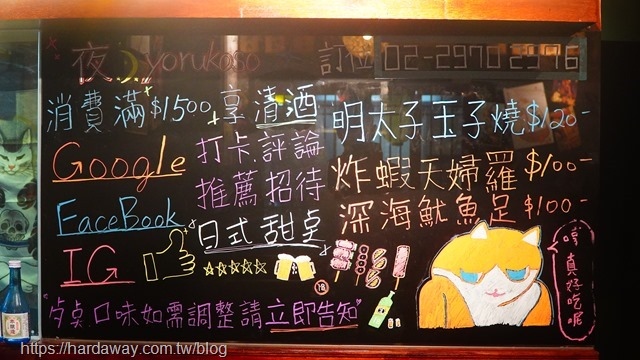 夜 yorukoso 訂位 02-2970 2976
消費滿$1500享清酒
Google 打卡.評論
FaceBook 推薦招待
IG 日式甜桌
"桌口味如需調整請立即告知"
明太子玉子燒$120-
炸蝦天婦羅$100-
深海魷魚足$100-
真好吃呢
18
https://hardaway.com.tw/blog